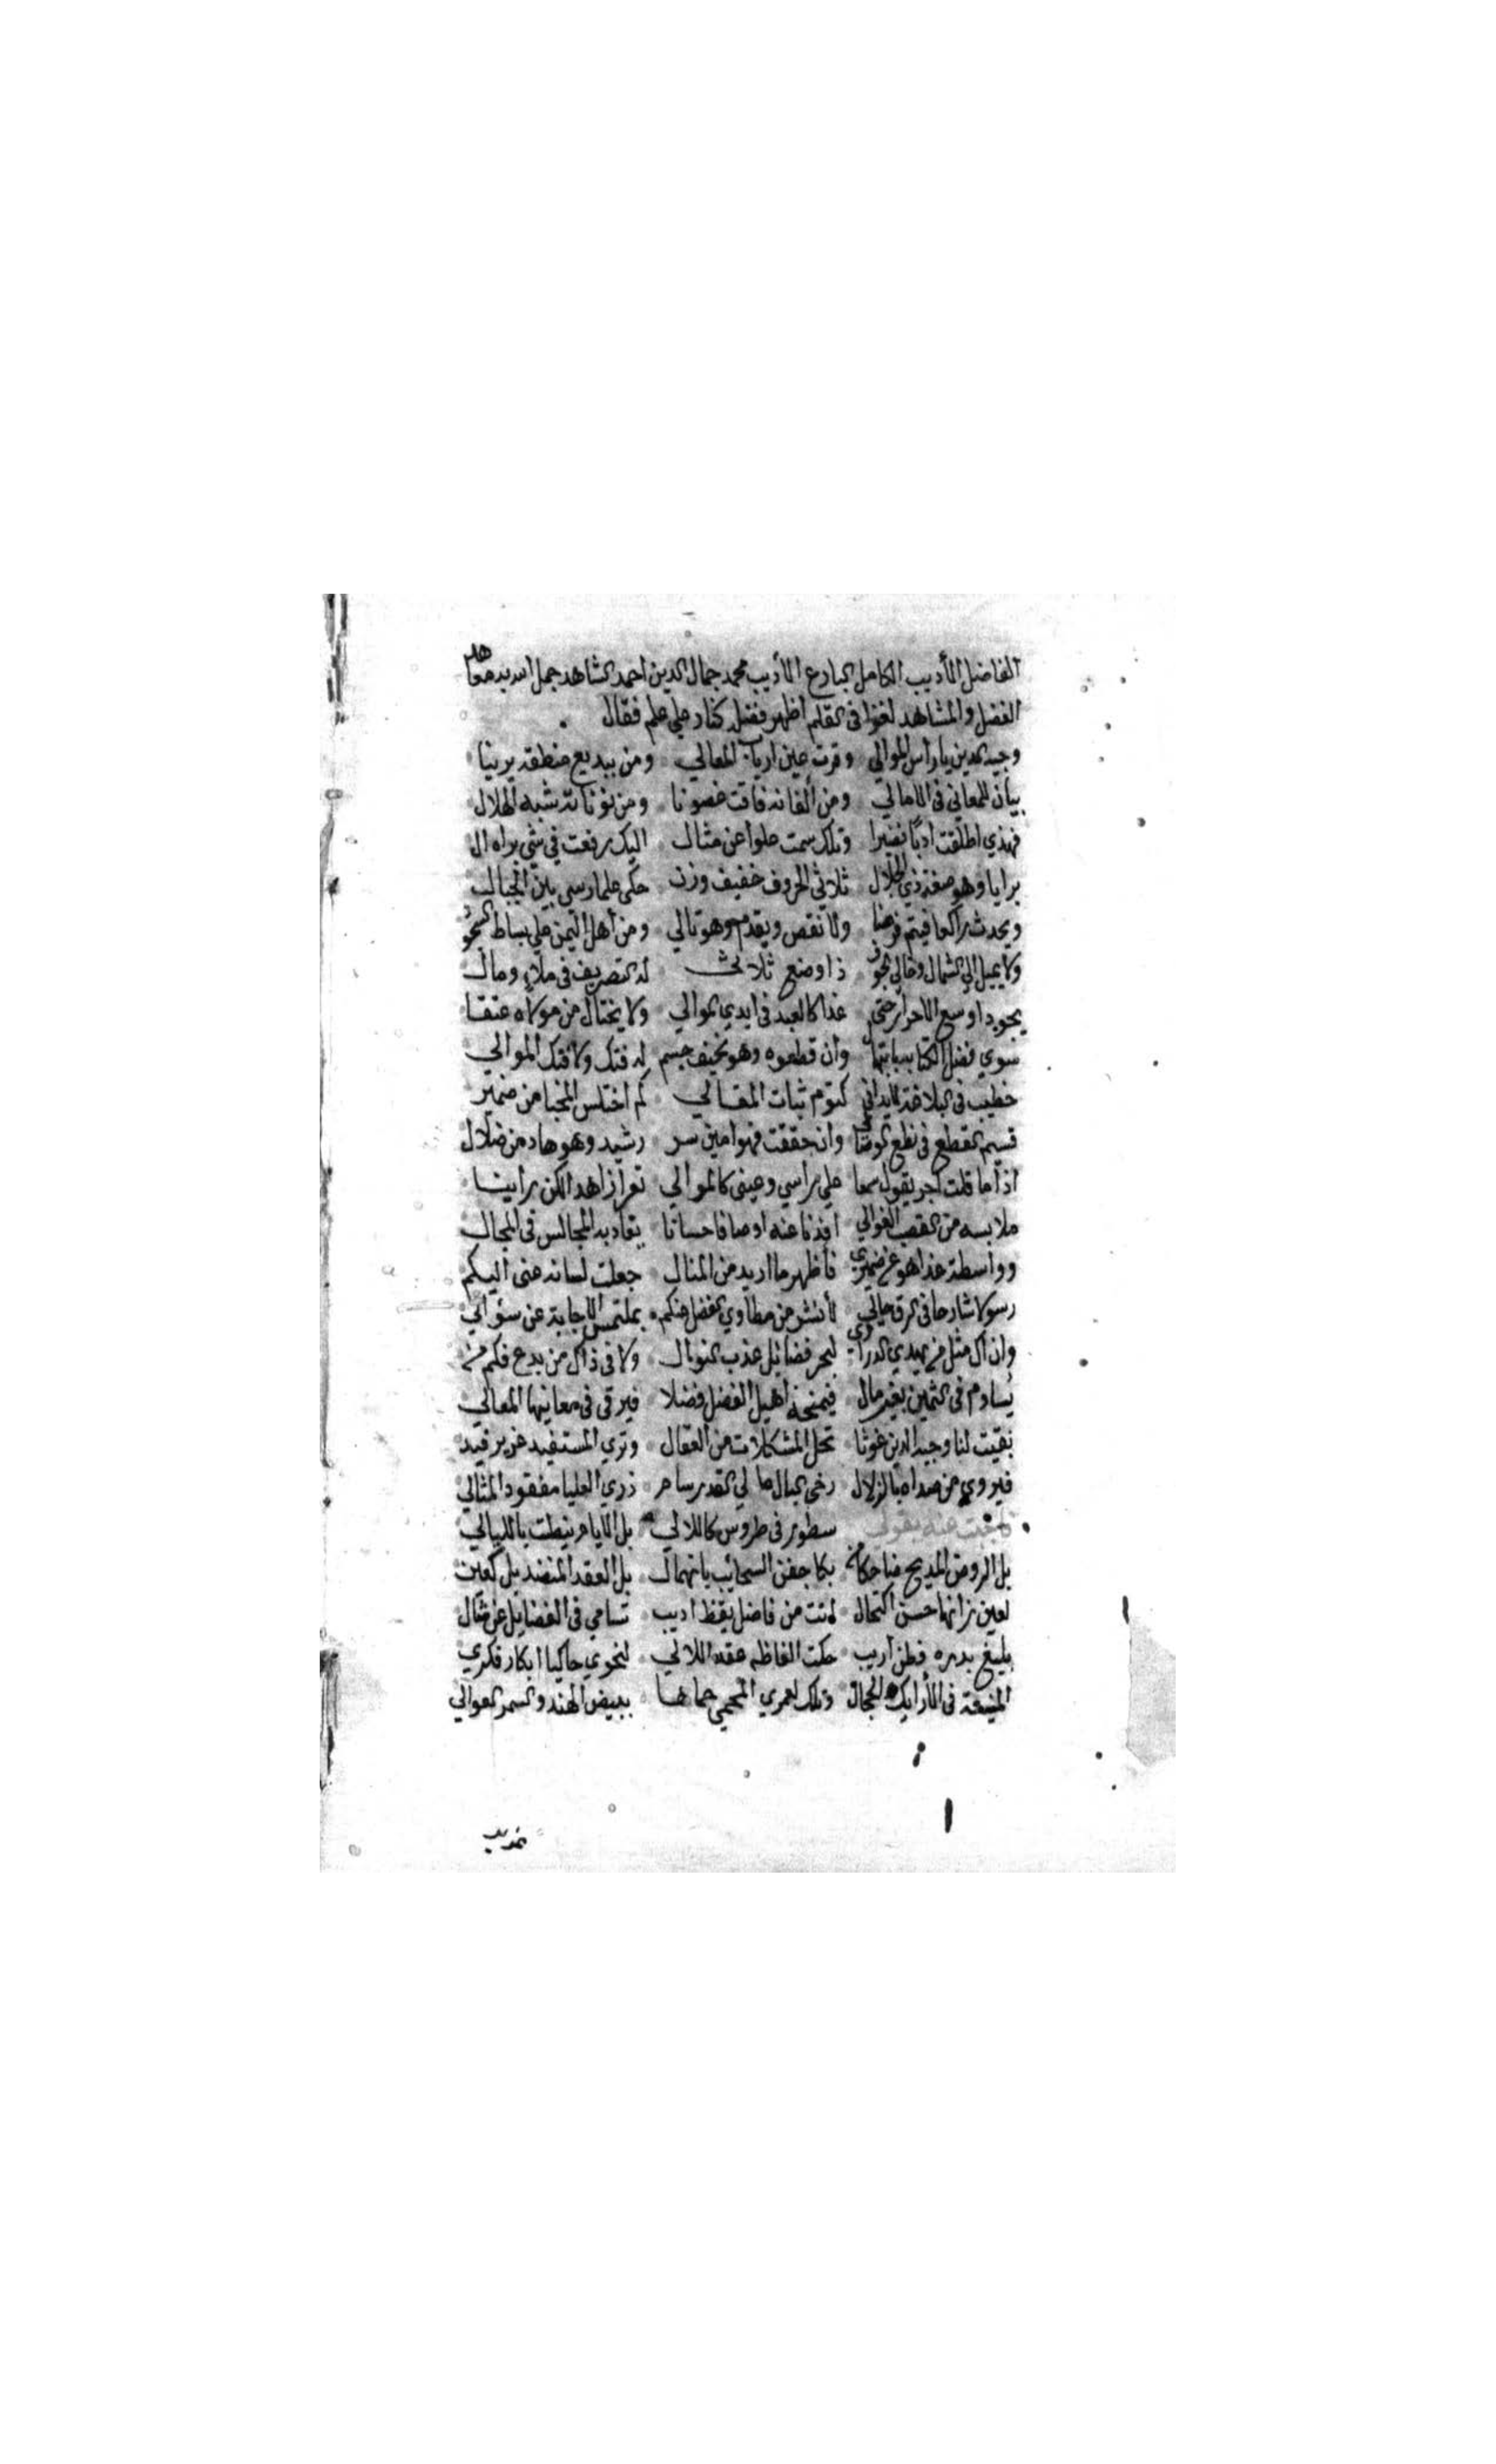 الفاضل الأديب الكامل البارع الأديب محمد جمال الدين احمد الشاهد جمل الله به معاهد
الفضل والمشاهد لغزا في القلم اظهر فضله كنار على علم فقال
وجيه الدين يا رأس الموالي وقرت عين ارباب المعالي ومن ببديع منطقه يرينا
بيان للمعاني في الامالي ومن ألفاته فاقت غصونا ومن نوناته شبه الهلال
فهذي اطلعت ادبا نضيرا وتلك سمت علوا عن مثال اليك رفعت في شي براه ال
برايا وهو صفة ذي الجلال ثلاثي الحروف خفيف وزن حكى علما رسى بين الجبال
ويحدث راكعا فيتم فرضا ولا نقص ويقدم وهو تالي ومن أهل اليمن على بساط
ولا يميل الى الشمال ذا وضع ثلاث له التصريف في ملاء ومال
يجود اوسع الاحرار حتى غدا كالعبد في ايدي الموالي ولا يختال من مولاه عتقا
سوي فضل الكتابة وان قطعوه وهو نحيف جسم له فتك ولا فتك الموالي
خطيب في البلاغة لا يداني كتوم ثبات المقالي كم اختلس المخبا من ضمير
قسيم القطع في نطع وان حققت فهو امين سر رشيد وهو هاد من ضلال
اذا ما قلت اجر يقول سمعا على راسي وعيني كالموالي تعرا زاهدا لكن رأينا
ملابسه من القصب الغوالي افدنا عنه اوصافا حسانا يقاد به المجالس في المجال
وواسطة غدا هو عن ضميري فأظهر ما اريد من المنال جعلت لسانه عني اليكم
رسولا شارحا في الرق حالي لأنشر من مطاوي الفضل منكم بملتمس الاجابة عن سؤالي
وان اك مثل من يهدي الدراري لبحر فضائل عذب النوال ولا في ذاك من بدع فكم من
يساوم في الثمين بغير مال فيمنحه اهيل الفضل فضلا فيرقى في معانيها المعالي
بقيت لنا وجيه الدين غوثا تحل المشكلات من العقال وتري المستفيد غزير فيد
فيروي من صداه بالزلال رخي البال عالي القدر سام ذري العليا مفقود المثالي
فاجبت عنه بقولي سطور في طروس كاللالي بل الايام نيطت بالليالي
بل الروض المديح ضاحكا من بكا جفن السحائب بانهمال بل العقد المنضد بل كعين
لعين زانها حسن اكتحال اتت من فاضل يقظ اديب تسامي في الفضايل عن مثال
بليغ مدره فطن اريب حكت الفاظه عقد اللالي لنحوي حاكيا ابكار فكري
المنيعة في الأرايك والحجال وتلك لعمري المحمي حماها ببيض الهند والسمر العوالي